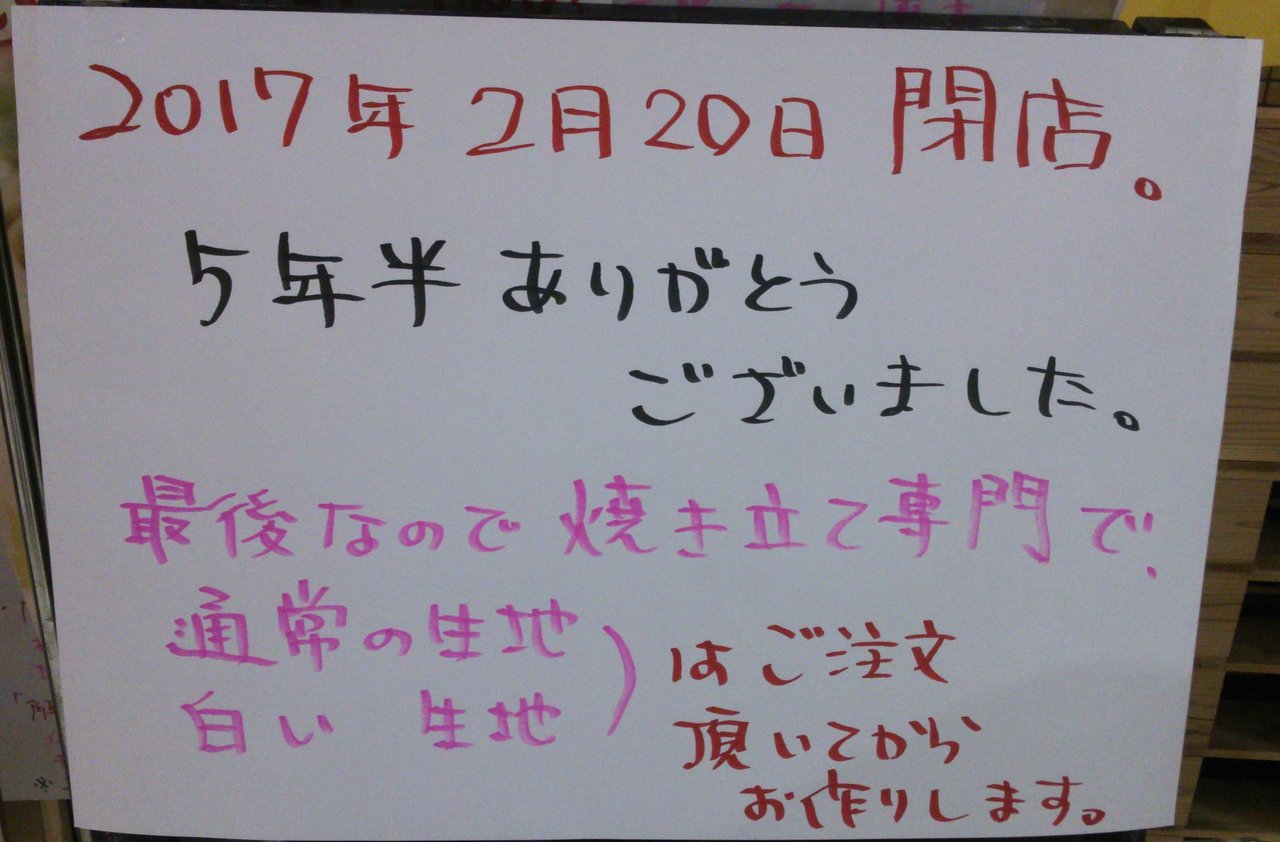 2017年2月20日 閉店。
5年半ありがとう
ございました。
最後なので焼き立て専門で、
通常の生地
白い 生地
はご注文
頂いてから
お作りします。